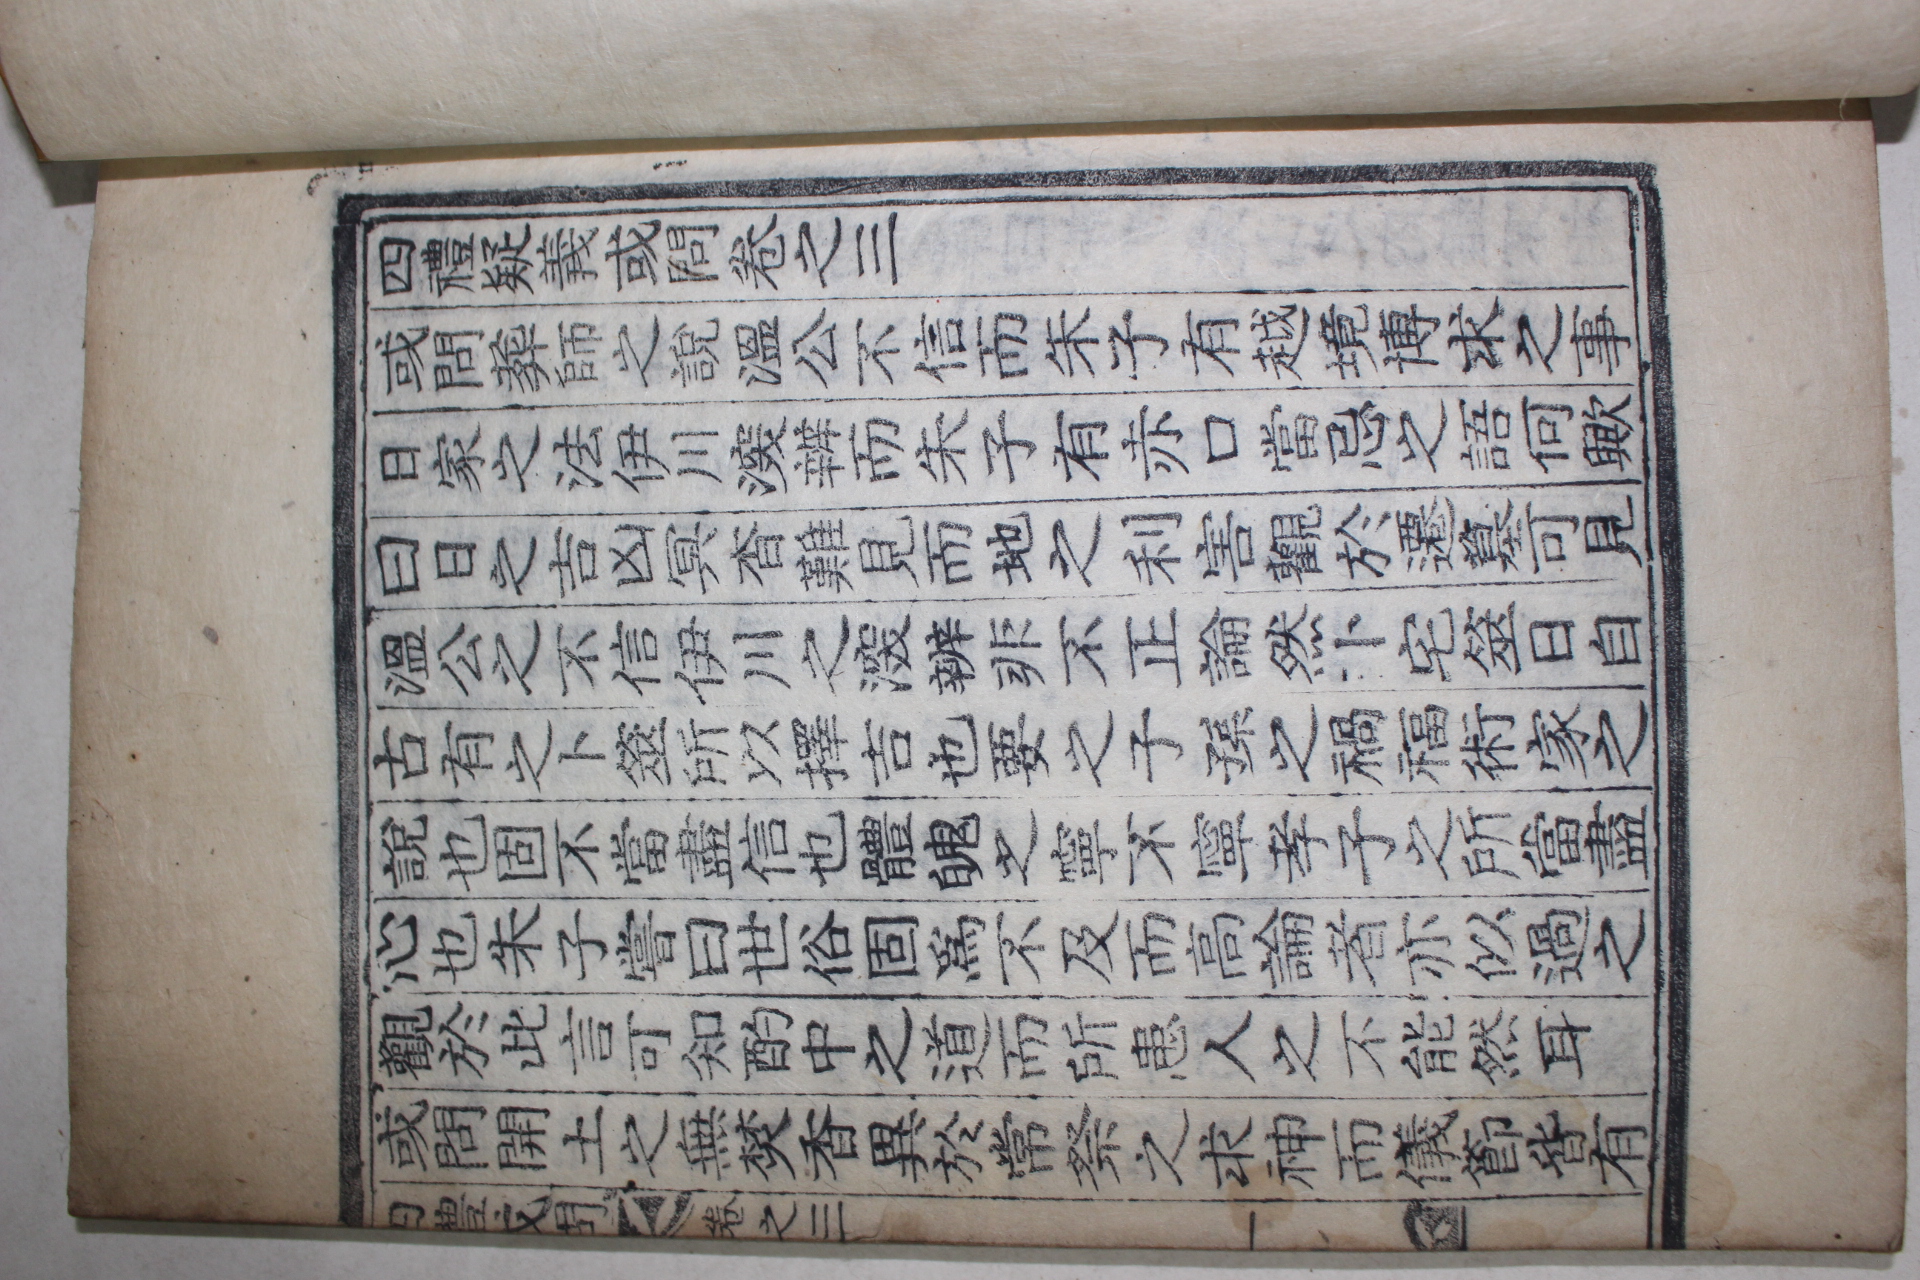 四禮疑義或問卷之三
或問葬師之說溫公不信而朱子有越境博求之事
日家之法伊川深辨而朱子有亦口當忌之語何歟
曰日之吉凶冥杳難見而地之利害觀於遷墓可見
溫公之不信伊川之深辨非不正論然卜宅筮日自
古有之卜筮所以擇吉也要之子孫之禍福術家之
說也固不當盡信也體魄之寧不寧孝子之所當盡
心也朱子嘗曰世俗固爲不及而高論者亦似過之
觀於此言可知酌中之道而所患人之不能然耳
或問開土之無焚香異於常祭之求神而儀節皆有
四禮或問 卷之三 一